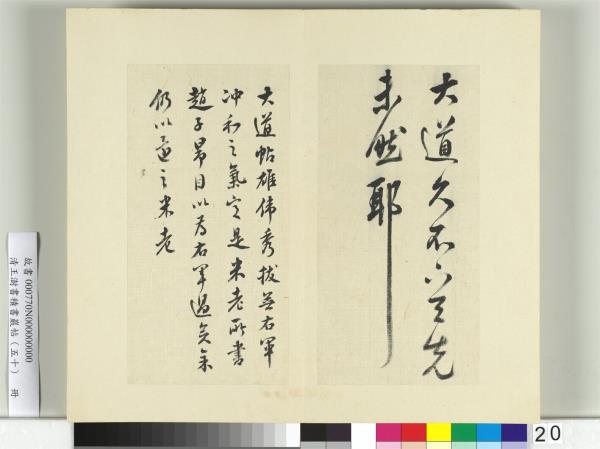 大道久不下先
未然耶
大道帖雄偉秀拔無右軍
冲和之氣定是米老所書
趙子昂目以為右軍過矣余
仍以還之米老
故書 000770N000000000
清王澍書積書巖帖（五十） 冊
20